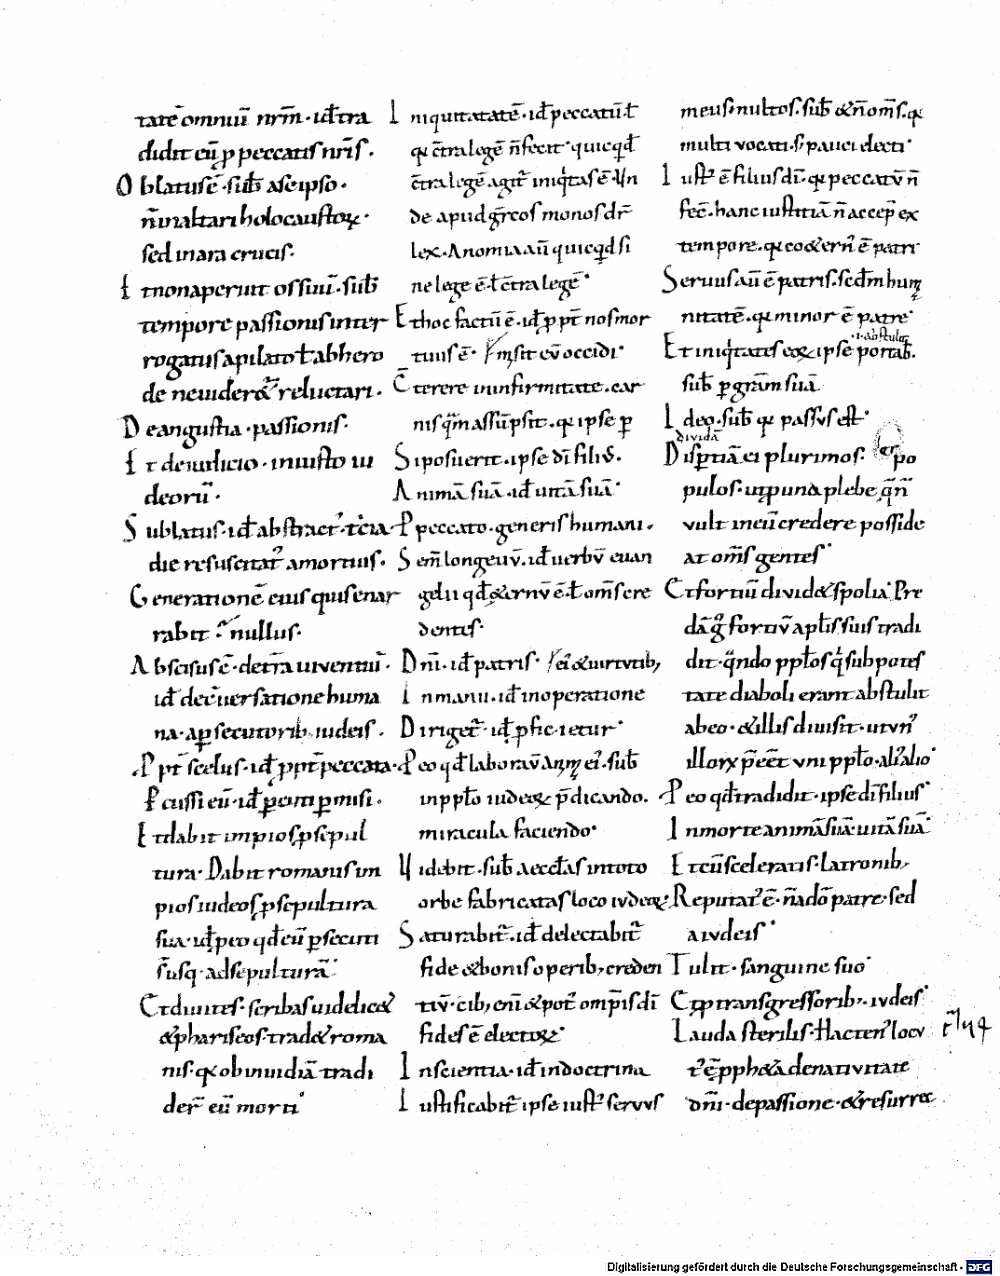 tatē omniū nr̄m · id ē tra
didit eū ꝓ peccatis nr̄is .
Oblatus ē · sub̄ a se ipso ·
n̄ in altari holocaustoꝝ ·
sed in ara crucis ·
Et non aperuit os suū · sub̄
tempore passionis inter
rogatus a pilato ł ab hero
de ne uideret̄ reluctari .
De angustia · passionis ·
Et de iudicio · iniusto iu
deorū .
Sublatus · id ē abstract᷒ · t̄cia
die resuscitat᷒ a mortuis .
Generationē eius quis enar
rabit · nullus ·
Abscisus ē · de t̄ra uiuentiū .
id ē de ɔuersatione huma
na · a ꝑsecutorib; iudeis .
Ppt̄ scelus · id ē ꝓpt̄ peccata ·
Pcussi eū · id ē ꝑcuti ꝑmisi .
Et dabit impios ꝓ sepul
tura · Dabit romanis im
pios iudeos ꝓ sepultura
sua · id ē ꝓ eo qd̄ eū ꝑsecuti
s̄ usq; ad sepulturā
Et diuites · scribas uidelicet
& phariseos · tradet roma
nis · qa ob inuidiā tradi
der̄ eū morti
Iniquitatē · id ē peccatū ł
qa ɔtra legē n̄ fecit · quicqd̄
ɔtra legē agit᷒ iniq̇tas ē · Vn
de apud gr̄cos monos dr̄
lex · Anomia aū quicqd̄ si
ne lege ē ł ɔtra legē
Et hoc factū ē · id ē ꝓpt̄ nos mor
tuus ē · sit eū occidi
Cterere in infirmitate · car
nis qua assūpsit · qa ipse ꝑ
Si posuerit · ipse dī filius .
Animā suā · id ē uitā suā
P peccato · generis humani .
Sem̄ longeuū · id ē uerbū euan
gelii qd̄ et̄nū ē ł om̄s cre
dentes ·
Dn̄i · id ē patris · ei᷒ & uirtutib;
In manu · id ē in operatione
Diriget᷒ · id ē ꝑficietur
P eo qd̄ laborauit anima ei᷒ · sub̄
in ppło iudeoꝝ p̄dicando .
miracula faciendo
Videbit · sub̄ aeccłas in toto
orbe fabricatas loco iudeoꝝ
Saturabit᷒ · id ē delectabit᷒
fide & bonis operib; creden
tiū · cib; eni & pot᷒ omp̄is dī
fides ē electoꝝ
In scientia · id ē in doctrina
Iustificabit᷒ ipse iust᷒ seruus
meus multos · sub̄ & n̄ om̄s · qa
multi uocati · s; pauci electi
Iust᷒ ē filius dī · qa peccatū n̄
fec̄ · hanc iustitiā n̄ accep̄ ex
tempore · qa coet̄n᷒ ē patri
Seruus aū ē patris · scd̄m huma
nitatē · qa minor ē patre
·i· abstulit
Et iniq̇tates eoꝝ ipse portab̄ .
sub̄ ꝑ gr̄am suā
Ideo · sub̄ qa passus est
diuidā
Disꝑtiā ei plurimos · po
pulos · ut ꝓ una plebe q̄ n̄
uult in eū credere posside
at om̄s gentes
Et fortiū diuidet spolia · Pre
dā g̊ fortiū apłis suis tradi
dit · qn̄do ppłos q̇ sub potes
tate diaboli erant abstulit
ab eo · & illis diuisit · ut un᷒
illorꝝ p̄eēt uni ppło · ali᷒ alio
P eo qd̄ tradidit · ipse dī filius
In morte animā suā · uitā suā
Et cū sceleratis · latronib;
Reputat᷒ ē · n̄ a dō patre · sed
a iudeis
Tulit · sanguine suo
Et ꝓ transgressorib; · iudeis
Lauda sterilis · Hacten᷒ locu
t᷒ ē ꝓpheta de natiuitate
dn̄i · de passione · & resurrec